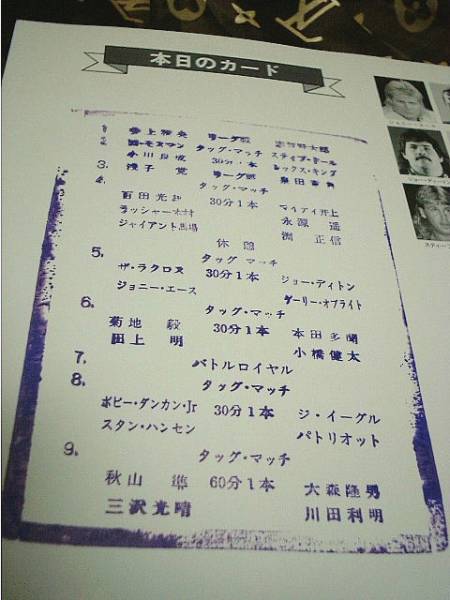 本日のカード
1. 井上雅央 リーグ戦 志賀賢太郎
2. モスマン タッグ・マッチ スティブ・ドール
小川良成 30分1本 レックス・キング
3. 浅子覚 リーグ戦 泉田
4. タッグ・マッチ
百田光雄 30分1本 マイティ井上
ラッシャー木村 永源遥
ジャイアント馬場 渕正信
休憩
5. タッグマッチ
ザ・ラクロス 30分1本 ジョー・ディトン
ジョニー・エース ゲーリー・オブライト
6. タッグ・マッチ
菊地毅 30分1本 本田多聞
田上明 小橋健太
7. バトルロイヤル
8. タッグ・マッチ
ボビー・ダンカン・Jr 30分1本 ジ・イーグル
スタン・ハンセン パトリオット
9. タッグ・マッチ
秋山準 60分1本 大森隆男
三沢光晴 川田利明
ジョニー・エース